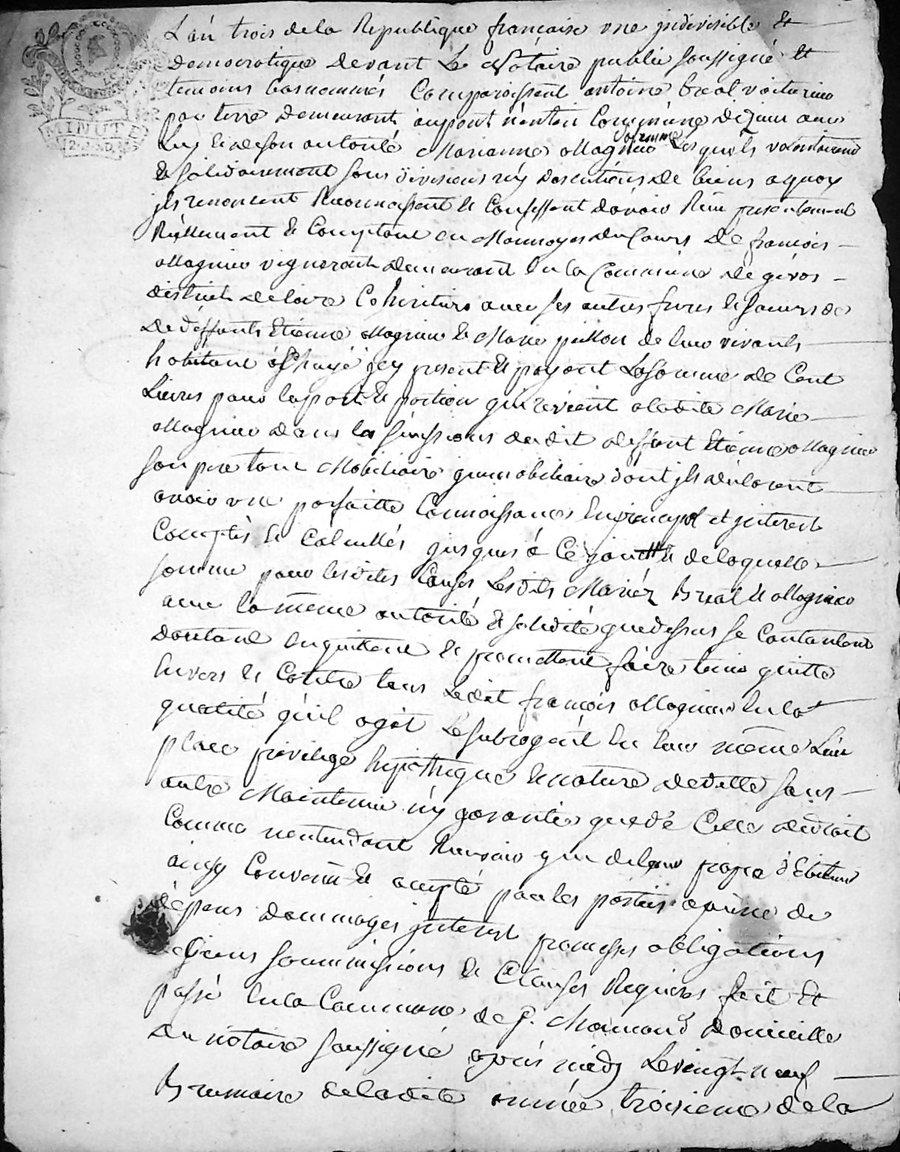 MINUTE
L'an trois de la Republique francaise une indivisible et
democratique devant Le Notaire public soussigné et
temoins basnommés Comparoissent antoine breat voiturier
par terre demeurant au pont nantin Commune
luy et de son autorité Marianne Magnin sa femme Lesquels volontairement
et solidairement sans division ny discutions de biens a quoy
ils renoncent Reconnaissent et Confessent davoir Recu presentement
Reellement et Comptant en Monnoyes du Cours de francois
Magnin vigneron demeurant en la Commune de givors
district de Cohéritier avec ses autres freres et soeurs de
de deffunts Etienne Magnin et Marie de leur vivants
habitant icy present et payant La somme de Cent
Livres pour la part et portion qui revient a ladite Marie
Magnin dans la sucession dudit deffunt Etienne Magnin
son pere tant Mobiliaire qu'immobiliaire dont ils déclarent
avoir une parfaitte Connoissance En principal et interest
Comptés et Calculés jusques à Ce jourd'huy de laquelle
somme pour lesdites Causes Lesdits Mariéz breat et Magnin
avec la même autorité et solidité que dessus se Contantent
doutant en quittent et promettent faire tenir quitte
Envers et Contre tous Ledit francois Magnin En la
qualité qu'il agit Le subrogeant En leur même Lieu
place privilege hipotheque et nature de dette sans
autre Maintenue n'y garantie que de Celle de droit
Comme n'entendant Recevoir que de leur propre
ainsy Convenu et accepté par les parties a peine de
dépens dommages interest promesses obligations
de biens soummissions et Clauses Requises fait et
passé En la Commune de St. Chamond domicille
du notaire soussigné apres midy Le vingt neuf
Brumaire de ladite année troisieme de la